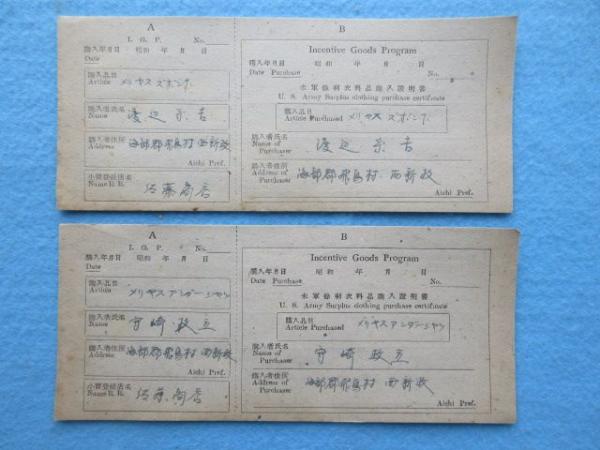 A
I. G. P. No.
購入年月日 昭和 年 月 日
Date
購入品目
Article メリヤスズボン下
購入者氏名
Name of
Purchaser 渡辺
購入者住所
Address of
Purchaser 海部郡飛島村 西新政
Aichi Pref.
小賣登録店名
Name R. R. 佐藤商店
B
Incentive Goods Program
購入年月日 昭和 年 月 日
Date Purchase No.
米軍餘剰衣料品購入證明書
U. S. Army Surplus clothing purchase certificate
購入品目
Article Purchased メリヤスズボン下
購入者氏名
Name of
Purchaser 渡辺
購入者住所
Address of
Purchaser 海部郡飛島村 西新政
Aichi Pref.
A
I. G. P. No.
購入年月日 昭和 年 月 日
Date
購入品目
Article メリヤスアンダーシャツ
購入者氏名
Name of
Purchaser 守崎政
購入者住所
Address of
Purchaser 海部郡飛島村 西新政
Aichi Pref.
小賣登録店名
Name R. R. 佐藤商店
B
Incentive Goods Program
購入年月日 昭和 年 月 日
Date Purchase No.
米軍餘剰衣料品購入證明書
U. S. Army Surplus clothing purchase certificate
購入品目
Article Purchased メリヤスアンダーシャツ
購入者氏名
Name of
Purchaser 守崎政
購入者住所
Address of
Purchaser 海部郡飛島村 西新政
Aichi Pref.